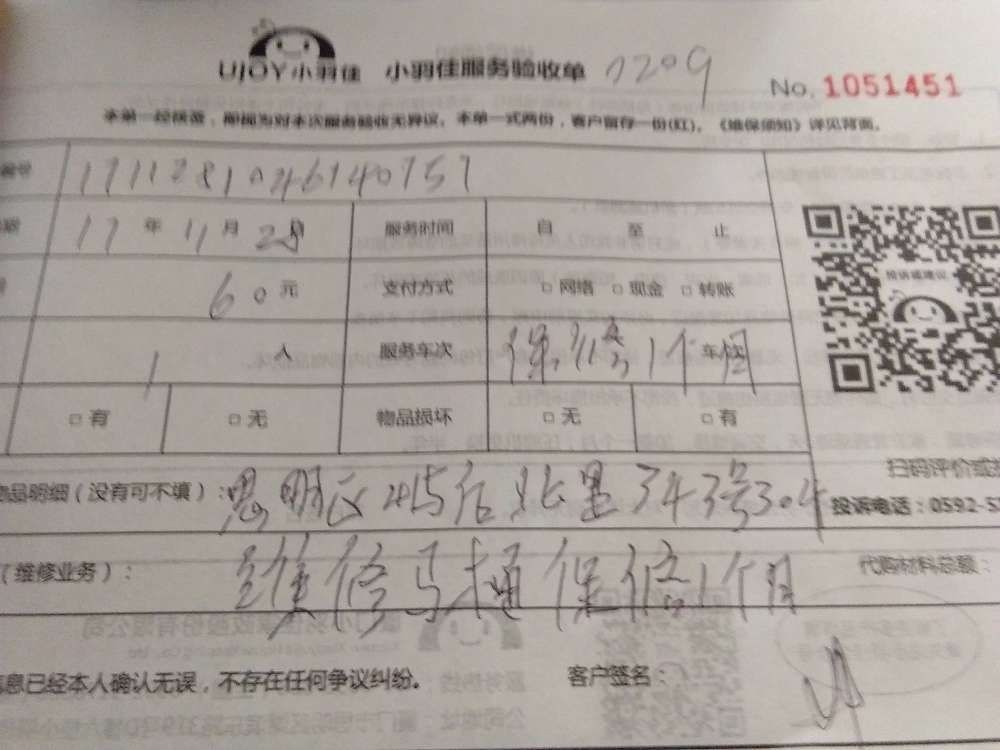 UJOY小羽佳 小羽佳服务验收单 1209
No. 1051451
本单一经核查，即视为对本次服务验收无异议。本单一式两份，客户留存一份(红)。《维保须知》详见背面。
编号 1711281046140757
17 年 11 月 28 日 服务时间 自 至 止
60 元 支付方式 □ 网络 □ 现金 □ 转账
1 人 服务车次 保修1个月 车/次
□ 有 □ 无 物品损坏 □ 无 □ 有
投诉或建议
扫码评价或
投诉电话：0592-5
物品明细（没有可不填）： 思明区 后 里343号304
（维修业务）： 维修马桶保修1个月
代购材料总额：
息已经本人确认无误，不存在任何争议纠纷。 客户签名：